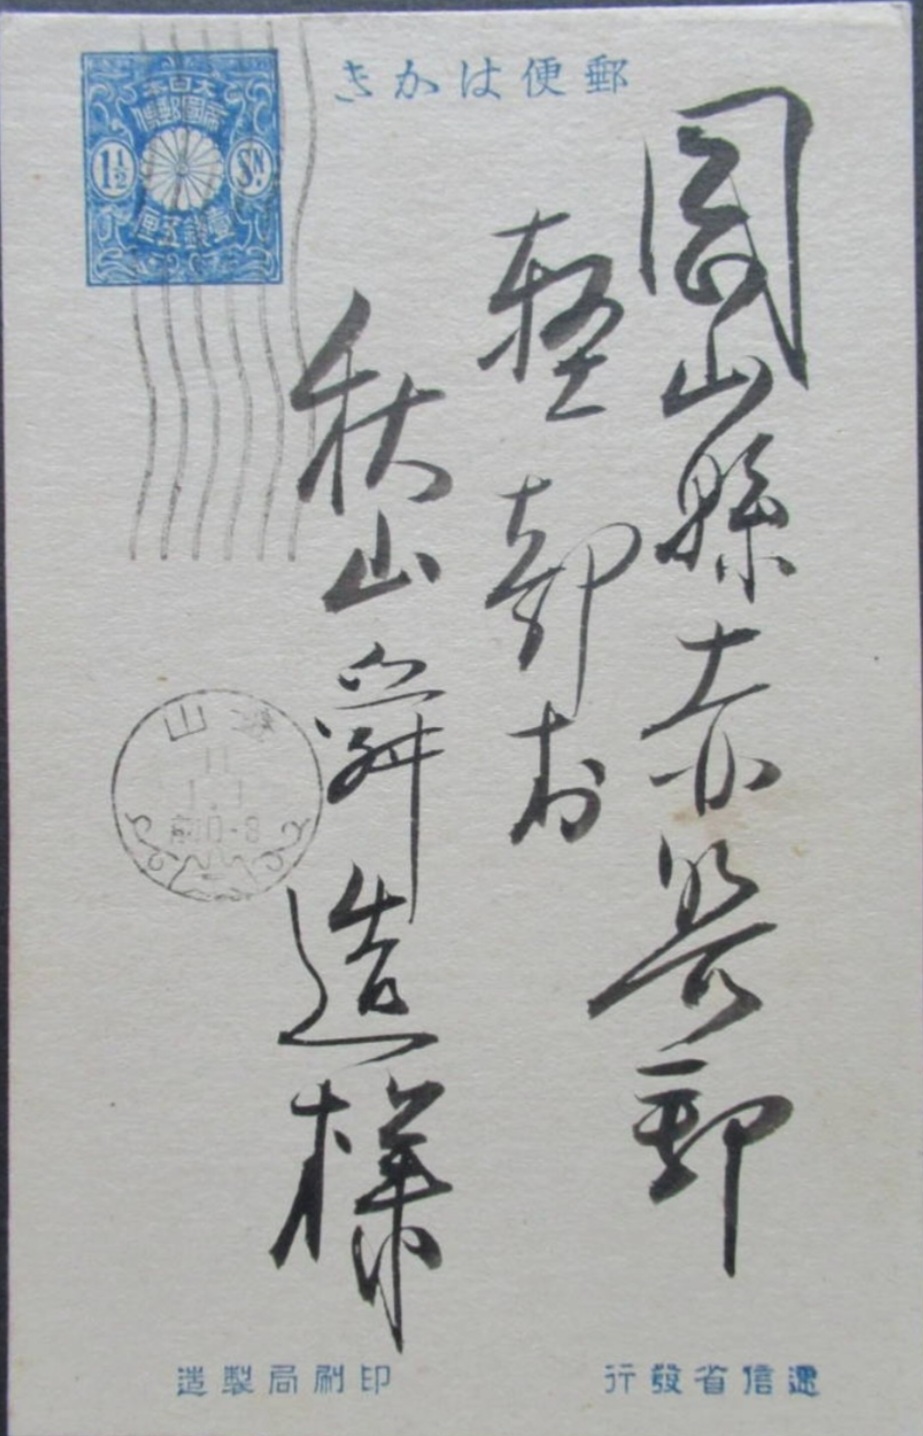 郵便はかき
大日本
帝國郵便
1½ Sn.
壹錢五厘
岡山縣赤磐郡
輕部村
秋山舜造様
山
11
1.1
前0-8
遞信省發行
印刷局製造